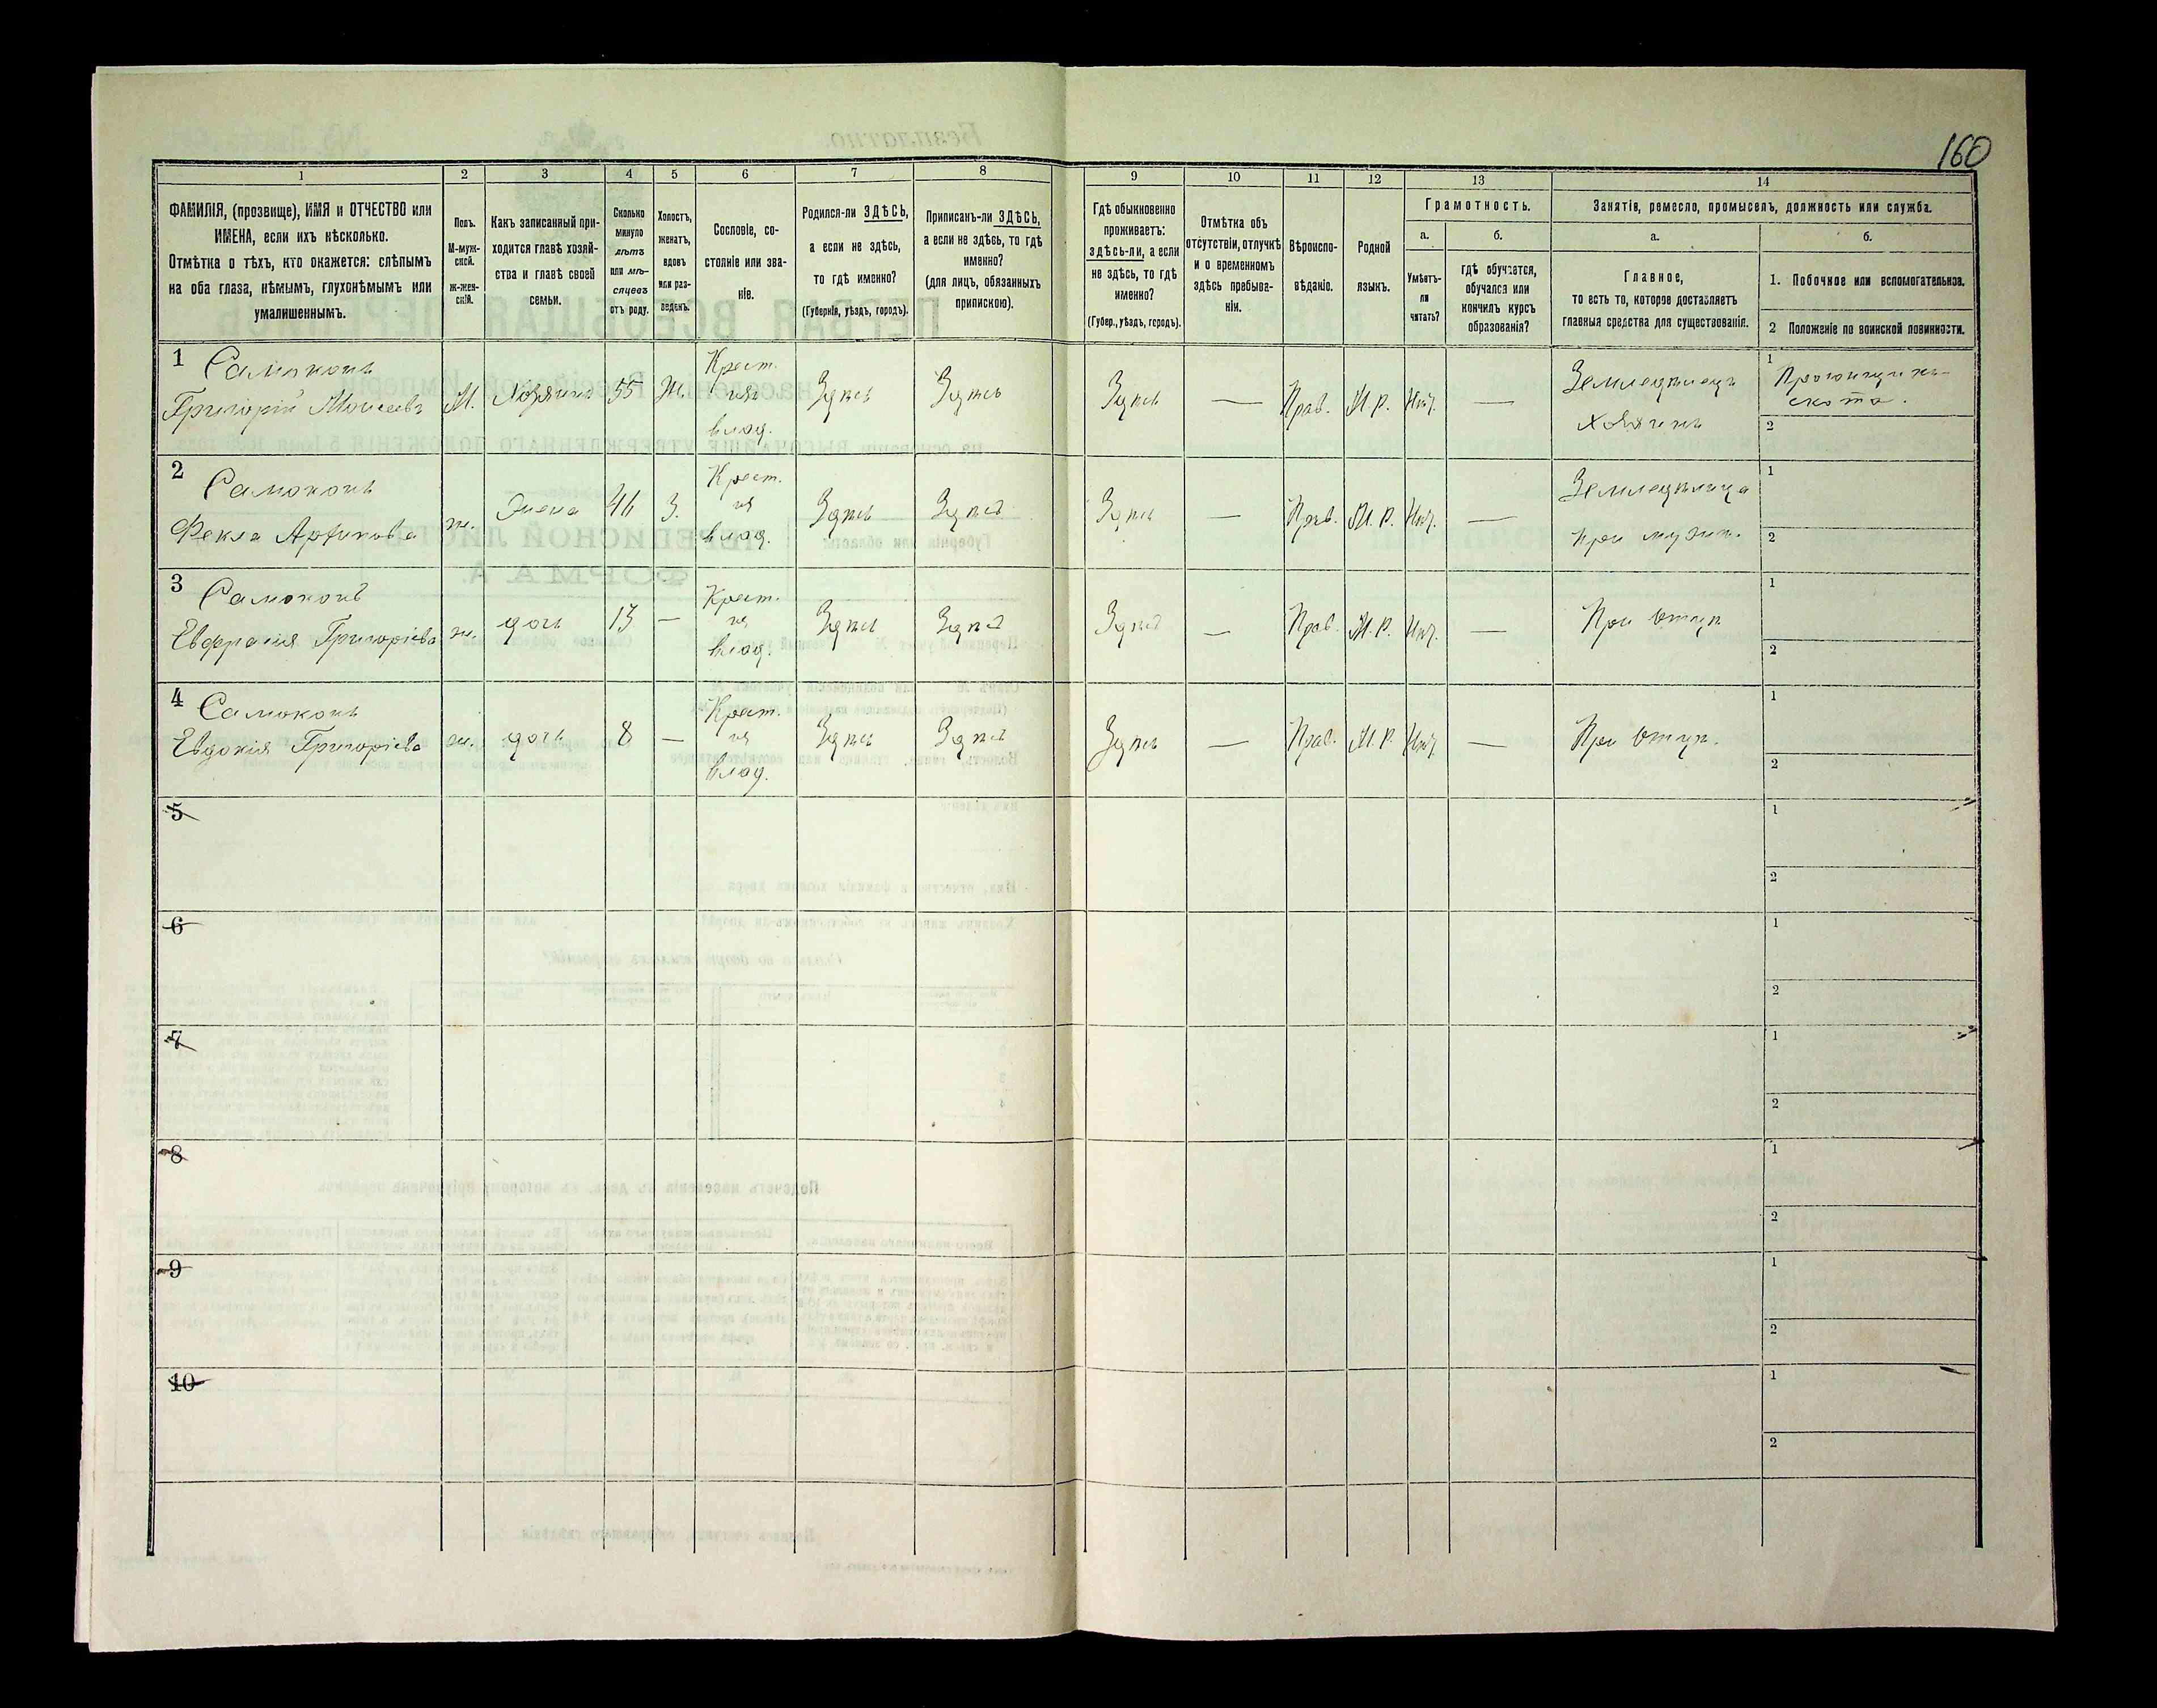 160
1 2 3 4 5 6 7 8 9 10 11 12 13 14
ФАМИЛІЯ, (прозвище), ИМЯ и ОТЧЕСТВО или
ИМЕНА, если ихъ нѣсколько.
Отмѣтка о тѣхъ, кто окажется: слѣпымъ
на оба глаза, нѣмымъ, глухонѣмымъ или
умалишеннымъ.
Полъ.
М-муж-
ской.
Ж-жен-
скій.
Какъ записанный при-
ходится главѣ хозяй-
ства и главѣ своей
семьи.
Сколько
минуло
лѣтъ
или мѣ-
сяцевъ
отъ роду.
Холостъ,
женатъ,
вдовъ
или раз-
веденъ.
Сословіе, со-
стояніе или зва-
ніе.
Родился-ли ЗДѢСЬ,
а если не здѣсь,
то гдѣ именно?
(Губернія, уѣздъ, городъ).
Приписанъ-ли ЗДѢСЬ,
а если не здѣсь, то гдѣ
именно?
(для лицъ, обязанныхъ
припискою).
Гдѣ обыкновенно
проживаетъ:
здѣсь-ли, а если
не здѣсь, то гдѣ
именно?
(Губер., уѣздъ, городъ).
Отмѣтка объ
отсутствіи, отлучкѣ
и о временномъ
здѣсь пребыва-
ніи.
Вѣроиспо-
вѣданіе.
Родной
языкъ.
Грамотность.
а.
Умѣетъ-
ли
читать?
б.
гдѣ обучается,
обучался или
кончилъ курсъ
образованія?
Занятіе, ремесло, промыселъ, должность или служба.
а.
Главное,
то есть то, которое доставляетъ
главныя средства для существованія.
б.
1. Побочное или вспомогательное.
2 Положеніе по воинской повинности.
1 Самоконь
Григорій Моисеевъ М. Хозяинъ 55 Ж. Крест. изъ влад. Здѣсь Здѣсь Здѣсь — Прав. М. р. Нѣт. — Земледѣлецъ хозяинъ
1
скота.
2
2 Самоконь
Фекла ж. Жена 46 З. Крест. из влад. Здѣсь Здѣсь Здѣсь — Прав. М. р. Нѣт. — Земледѣлица при муж.
1
2
3 Самоконь
Евфросія Григорієва ж. дочь 13 — Крест. из влад. Здѣсь Здѣсь Здѣсь — Прав. М. р. Нѣт. — При отцѣ
1
2
4 Самоконь
Евдокія Григорієва ж. дочь 8 — Крест. из влад. Здѣсь Здѣсь Здѣсь — Прав. М. р. Нѣт. — При отцѣ.
1
2
5
1
2
6
1
2
7
1
2
8
1
2
9
1
2
10
1
2